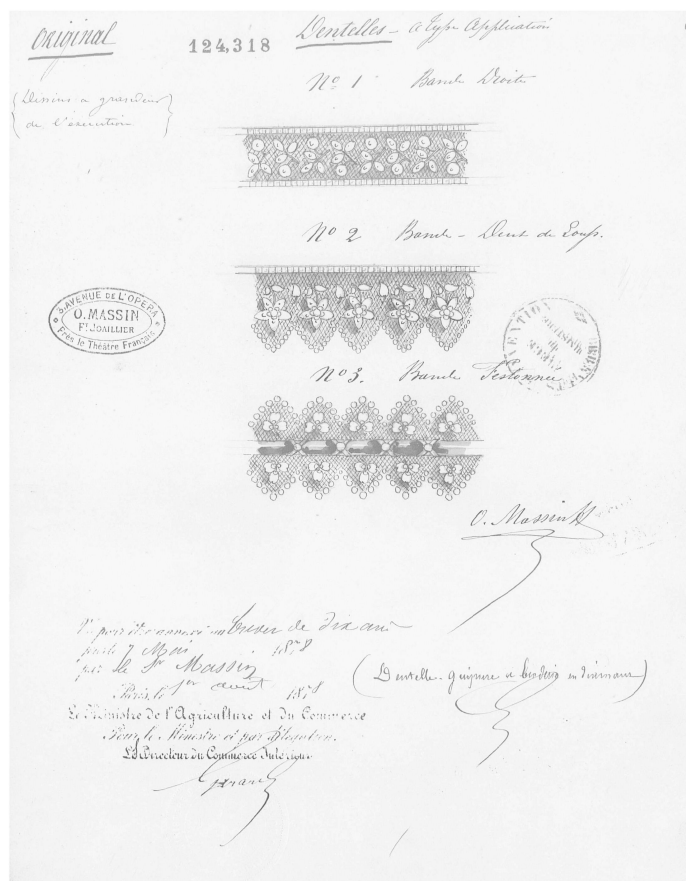 Original
124,318
Dentelles - a type Application
No 1 Bande Droite
(Dessins a grandeur
de l'exécution)
No 2 Bande - Dent de Loup.
3, AVENUE DE L'OPÉRA
O. MASSIN
Ft JOAILLIER
Près le Théâtre Français
BREVETS
D'INVENTION
No 3. Bande Festonnée
O. Massin
Vu pour être annexé au brevet de dix ans
pris le 7 Mai 1878
par le Sr Massin
Paris, le 1er août 1878
Le Ministre de l'Agriculture et du Commerce
Pour le Ministre et par délégation.
Le Directeur du Commerce Intérieur
(Dentelle - guipure et broderie en diamant)